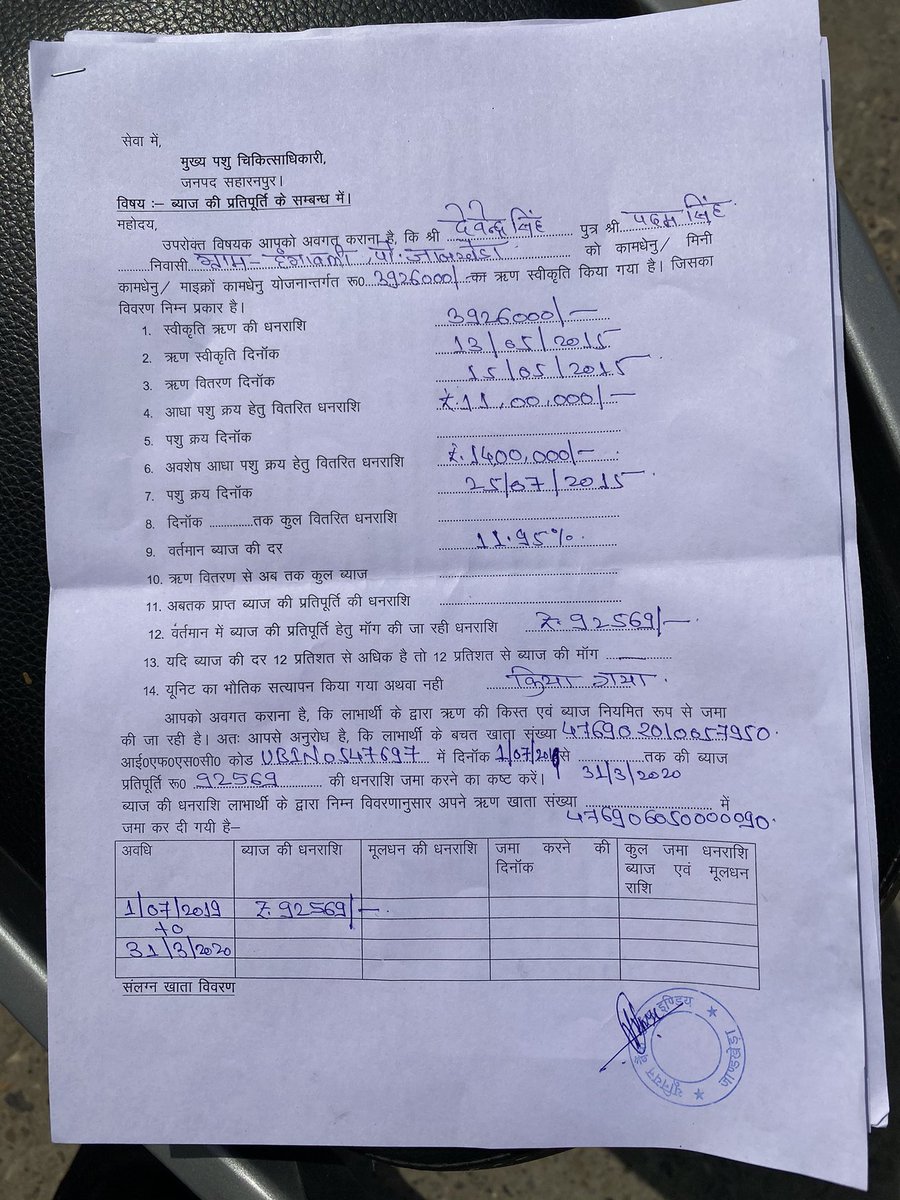 सेवा में,
मुख्य पशु चिकित्साधिकारी,
जनपद सहारनपुर।
विषय :– ब्याज की प्रतिपूर्ति के सम्बन्ध में।
महोदय,
उपरोक्त विषयक आपको अवगत कराना है, कि श्री देवेन्द्र सिंह पुत्र श्री पदम सिंह
निवासी ग्राम - पो. को कामधेनु/ मिनी
कामधेनु/ माइक्रों कामधेनु योजनान्तर्गत रू0 3926000/- का ऋण स्वीकृति किया गया है। जिसका
विवरण निम्न प्रकार है।
1. स्वीकृति ऋण की धनराशि 3926000/-
2. ऋण स्वीकृति दिनॉक 13/05/2015
3. ऋण वितरण दिनॉक 15/05/2015
4. आधा पशु क्रय हेतु वितरित धनराशि ₹.11,00,000/-
5. पशु क्रय दिनॉक
6. अवशेष आधा पशु क्रय हेतु वितरित धनराशि ₹.1400,000/-
7. पशु क्रय दिनॉक 25/07/2015
8. दिनॉक .............तक कुल वितरित धनराशि
9. वर्तमान ब्याज की दर 11.95%
10. ऋण वितरण से अब तक कुल ब्याज
11. अबतक प्राप्त ब्याज की प्रतिपूर्ति की धनराशि
12. वर्तमान में ब्याज की प्रतिपूर्ति हेतु मॉग की जा रही धनराशि ₹.92569/-
13. यदि ब्याज की दर 12 प्रतिशत से अधिक है तो 12 प्रतिशत से ब्याज की मॉग
14. यूनिट का भौतिक सत्यापन किया गया अथवा नही किया गया.
आपको अवगत कराना है, कि लाभार्थी के द्वारा ऋण की किस्त एवं ब्याज नियमित रूप से जमा
की जा रही है। अतः आपसे अनुरोध है, कि लाभार्थी के बचत खाता संख्या 476902010057950
आई0एफ0एस0सी0 कोड UBIN0547697 में दिनॉक 1/07/2019 से ..............तक की ब्याज
31/3/2020
प्रतिपूर्ति रू0 92569 की धनराशि जमा करने का कष्ट करें।
ब्याज की धनराशि लाभार्थी के द्वारा निम्न विवरणानुसार अपने ऋण खाता संख्या ........................ में
476906050000090.
जमा कर दी गयी है–
अवधि ब्याज की धनराशि मूलधन की धनराशि जमा करने की दिनॉक कुल जमा धनराशि ब्याज एवं मूलधन राशि
1/07/2019 ₹.92569/-
to
31/3/2020
संलग्न खाता विवरण
यूनियन बैंक इण्डिय